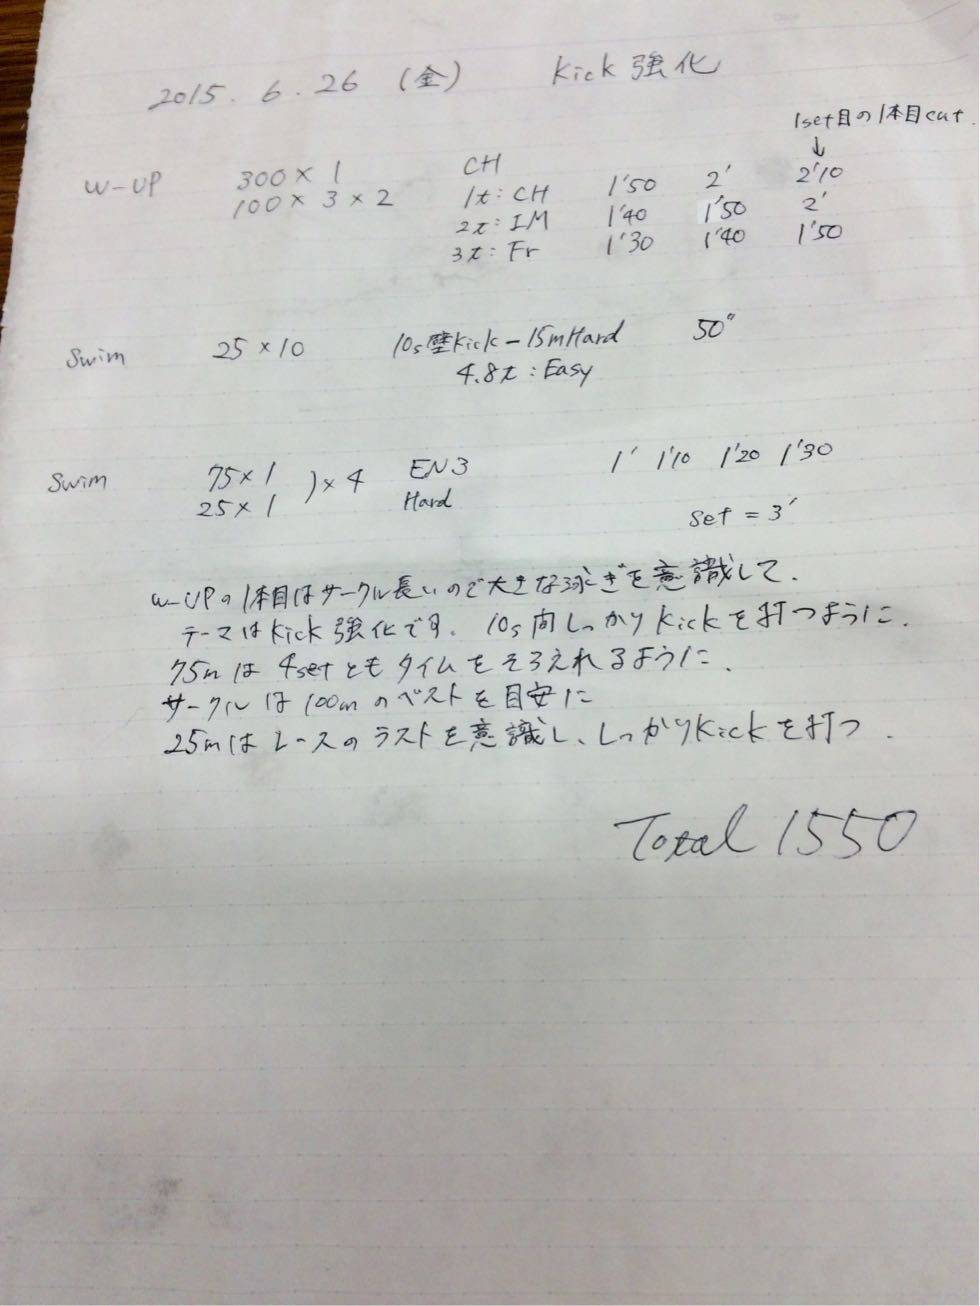 2015. 6. 26 (金) Kick 強化
1set目の1本目cut.
↓
W-UP 300×1 CH
100×3×2 1t:CH 1'50 2' 2'10
2t:IM 1'40 1'50 2'
3t:Fr 1'30 1'40 1'50
Swim 25×10 10s壁Kick-15mHard 50"
4.8t:Easy
Swim 75×1 )×4 EN3 1' 1'10 1'20 1'30
25×1 Hard
set=3'
W-UPの1本目はサークル長いので大きな泳ぎを意識して.
テーマはKick強化です. 10s間しっかりKickを打つように.
75mは4setともタイムをそろえれるように.
サークルは100mのベストを目安に
25mはレースのラストを意識し、しっかりKickを打つ.
Total 1550